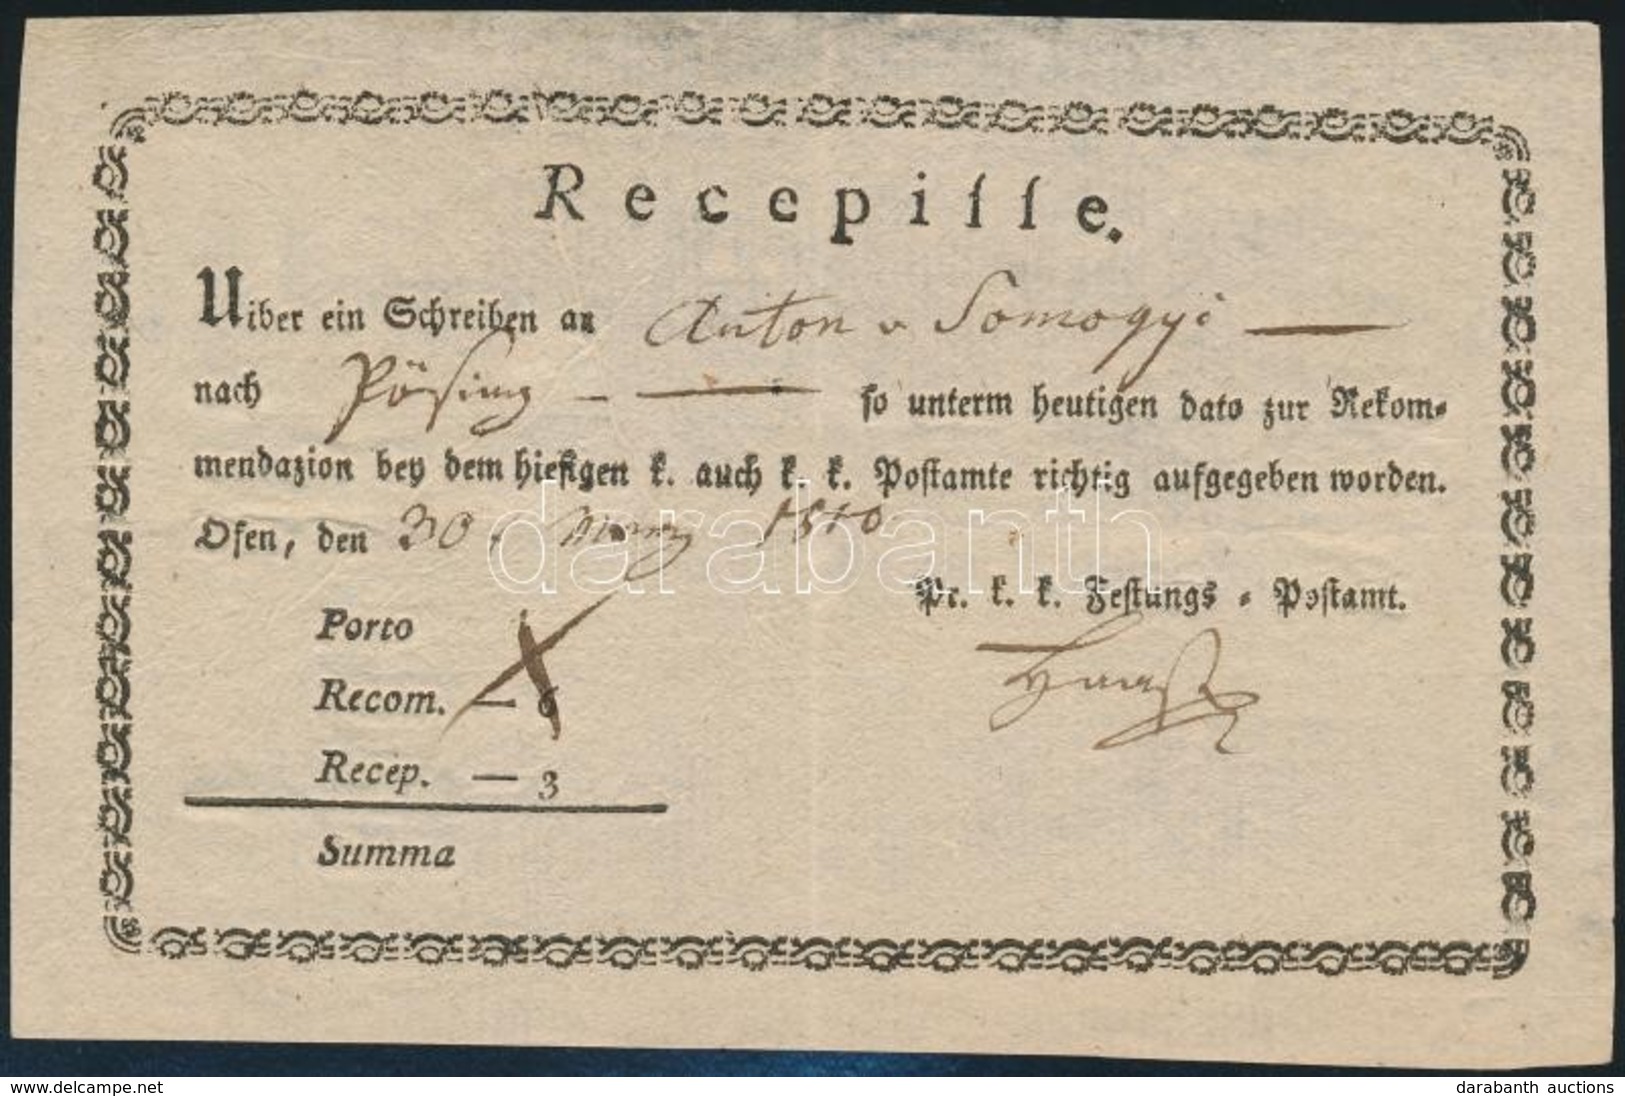 Recepiſſe.
Uiber ein Schreiben an Anton v Somogyi
nach Pösing — so unterm heutigen dato zur Rekom=
mendazion bey dem hieſigen k. auch k. k. Poſtamte richtig aufgegeben worden.
Ofen, den 30. März 1810
Pr. k. k. Feſtungs = Poſtamt.
Porto
Recom. — 6
Recep. — 3
Summa
darabanth
www.delcampe.net
darabanth auctions